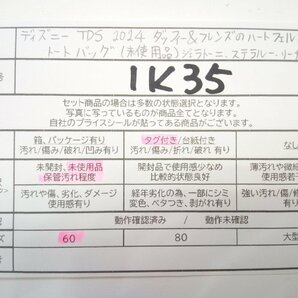 ディズニー TDS 2024 ダッフィー&フレンズのハートフェル
トートバッグ(未使用品)ジェラトーニ、ステラ・ルー、リーナ
号
1K35
セット商品の場合は多数の状態選択となります。
写真に写っているものが商品の全てです。
自社のプライスシールが貼ってある商品がございます。
箱、パッケージ有り
汚れ/傷み/破れ/凹み有り
タグ付き/台紙付き
汚れ/傷み/折れ/破れ 有り
なし
未開封、未使用品
保管汚れ程度
開封品で使用感少なめ
比較的状態良好
薄汚れや微細
使用感若干
汚れや傷、劣化、ダメージ
使用感有り
経年劣化の為、一部にシミ
変色、ベタつき、剥がれ有り
強い汚れ/傷
有り
動作確認済み / 動作未確認
ズ
60
80
大型